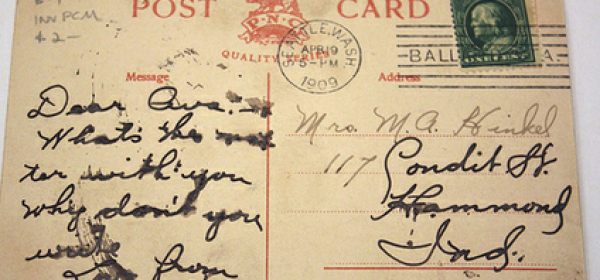 INV PCM
42-
POST CARD
P.N.C.
QUALITY SERIES
SEATTLE, WASH.
APR 19
5-PM
1909
BALL A.
ONE CENT
Message
Address
Dear Ava:-
Whats the mat
ter with you
why don't you
write
from
Mrs. M.A. Hinkel
117 Condit St.
Hammond
Ind.